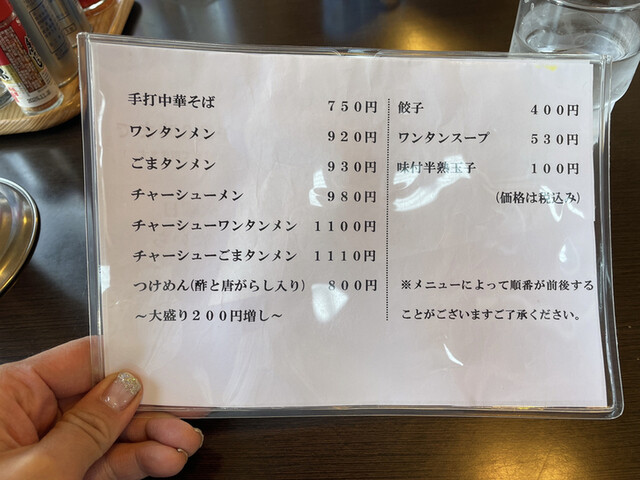 手打中華そば ７５０円
ワンタンメン ９２０円
ごまタンメン ９３０円
チャーシューメン ９８０円
チャーシューワンタンメン １１００円
チャーシューごまタンメン １１１０円
つけめん(酢と唐がらし入り) ８００円
～大盛り２００円増し～
餃子 ４００円
ワンタンスープ ５３０円
味付半熟玉子 １００円
(価格は税込み)
※メニューによって順番が前後する
ことがございますご了承ください。